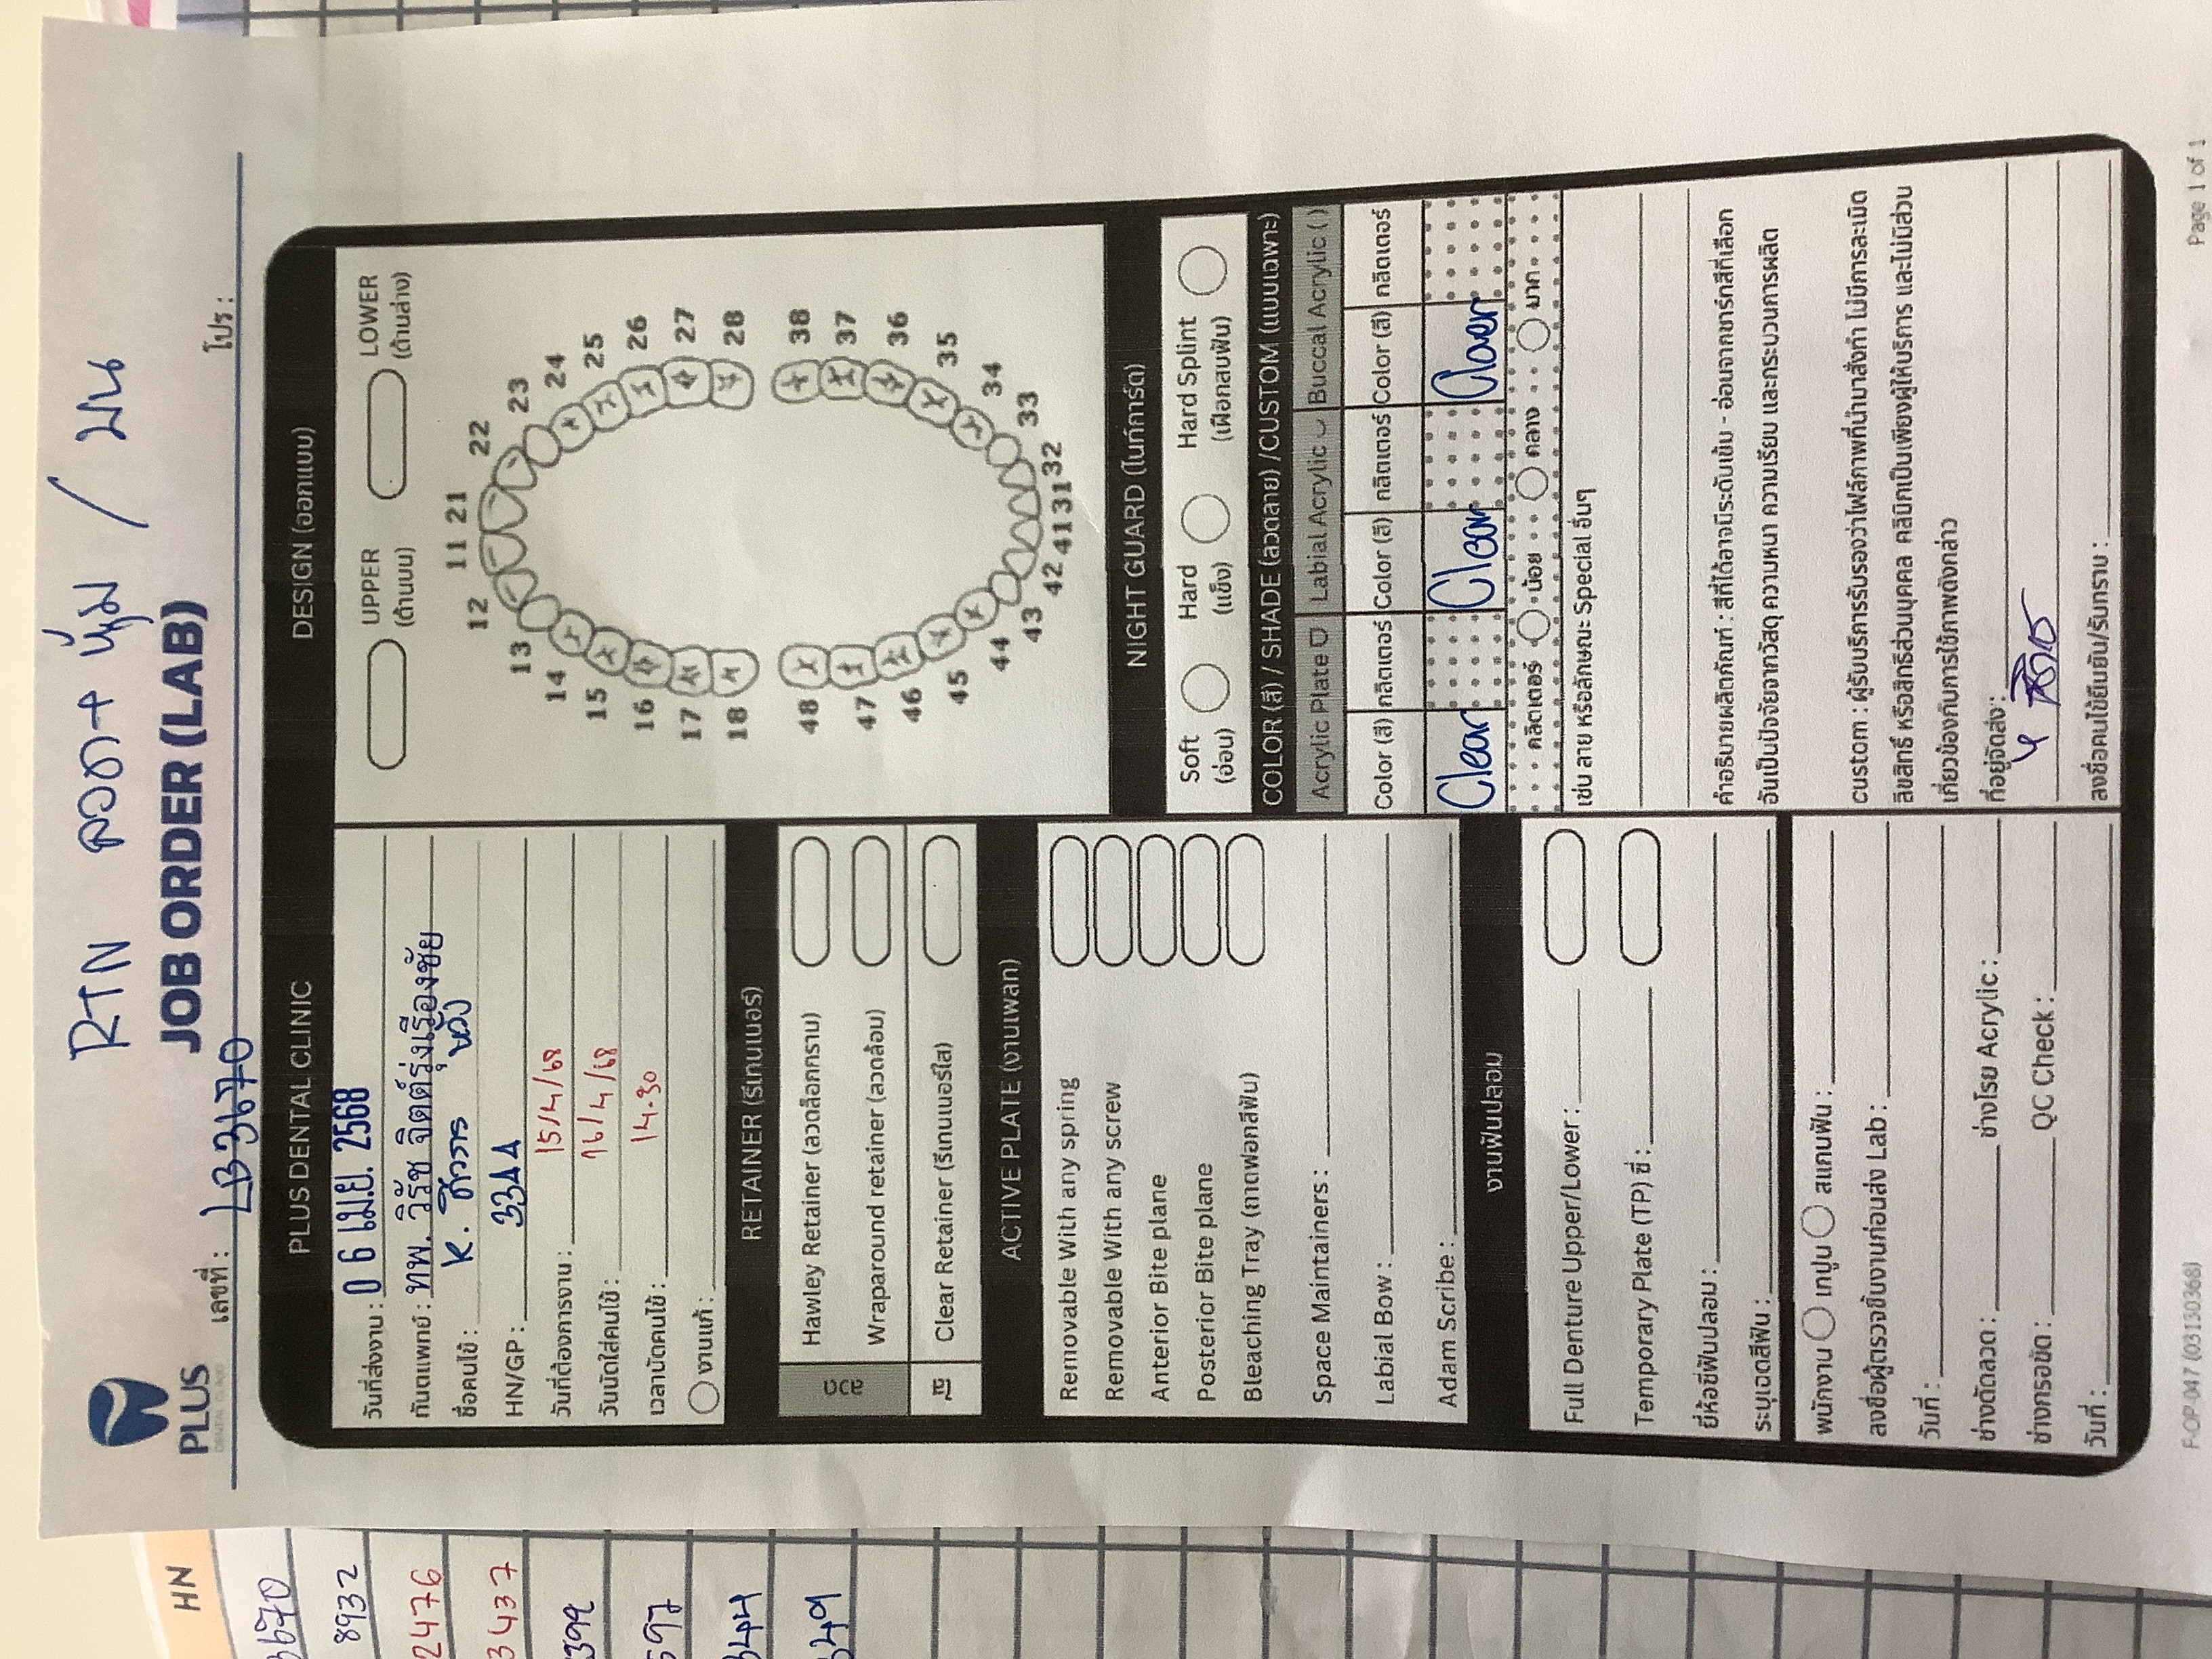 RTN ลวด + หุ้ม / บน
PLUS
DENTAL CLINIC
JOB ORDER (LAB)
เลขที่ : LB3670
โปร :
HN
3670
8932
2476
3437
399
597
344
349
PLUS DENTAL CLINIC
วันที่ส่งงาน : 0 6 เม.ย. 2568
ทันตแพทย์ : ทพ. วิรัช จิตต์รุ่งเรืองชัย
ชื่อคนไข้ : K.
HN/GP : 3344
วันที่ต้องการงาน : 15/4/68
วันนัดใส่คนไข้ : 16/4/68
เวลานัดคนไข้ : 14.30
งานแก้ :
RETAINER (รีเทนเนอร์)
ลวด
Hawley Retainer (ลวดล็อกกราม)
Wraparound retainer (ลวดล้อม)
ใส
Clear Retainer (รีเทนเนอร์ใส)
ACTIVE PLATE (งานเพลท)
Removable With any spring
Removable With any screw
Anterior Bite plane
Posterior Bite plane
Bleaching Tray (ถาดฟอกสีฟัน)
Space Maintainers :
Labial Bow :
Adam Scribe :
งานฟันปลอม
Full Denture Upper/Lower :
Temporary Plate (TP) ซี่ :
ยี่ห้อซี่ฟันปลอม :
ระบุเฉดสีฟัน :
พนักงาน เทปูน สแกนฟัน :
ลงชื่อผู้ตรวจชิ้นงานก่อนส่ง Lab :
วันที่ :
ช่างดัดลวด : ช่างโรย Acrylic :
ช่างกรอขัด : QC Check :
วันที่ :
DESIGN (ออกแบบ)
UPPER (ด้านบน)
LOWER (ด้านล่าง)
11 21
12 22
13 23
14 24
15 25
16 26
17 27
18 28
48 38
47 37
46 36
45 35
44 34
43 33
42 41 31 32
NIGHT GUARD (ไนท์การ์ด)
Soft (อ่อน)
Hard (แข็ง)
Hard Splint (เฝือกสบฟัน)
COLOR (สี) / SHADE (ลวดลาย) /CUSTOM (แบบเฉพาะ)
Acrylic Plate Labial Acrylic Buccal Acrylic ( )
Color (สี) กลิตเตอร์ Color (สี) กลิตเตอร์ Color (สี) กลิตเตอร์
Clear Clear Claer
กลิตเตอร์ น้อย กลาง มาก
เช่น ลาย หรือลักษณะ Special อื่นๆ
คำอธิบายผลิตภัณฑ์ : สีที่ได้อาจมีระดับเข้ม - อ่อนจากชาร์ทสีที่เลือก
อันเป็นปัจจัยจากวัสดุ ความหนา ความเรียบ และกระบวนการผลิต
custom : ผู้รับบริการรับรองว่าไฟล์ภาพที่นำมาสั่งทำ ไม่มีการละเมิด
ลิขสิทธิ์ หรือสิทธิส่วนบุคคล คลินิกเป็นเพียงผู้ให้บริการ และไม่มีส่วน
เกี่ยวข้องกับการใช้ภาพดังกล่าว
ที่อยู่จัดส่ง :
ลงชื่อคนไข้ยืนยัน/รับทราบ :
F-OP-047 (03130368)
Page 1 of 1